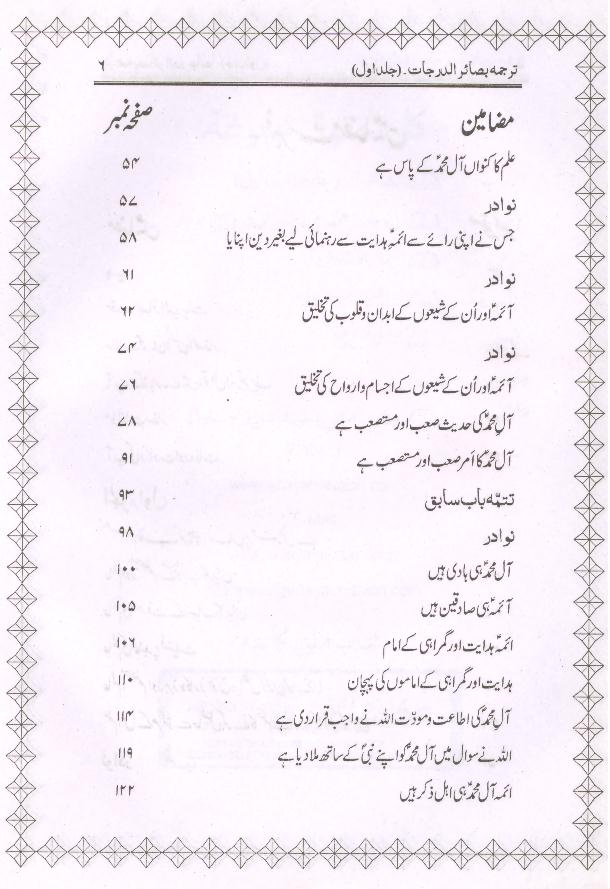 ترجمہ بصائر الدرجات۔ (جلد اول) ۶
مضامین صفحہ نمبر
علم کا کنواں آل محمدؐ کے پاس ہے ۵۴
نوادر ۵۷
جس نے اپنی رائے سے ائمہؑ ہدایت سے رہنمائی لیے بغیر دین اپنایا ۵۸
نوادر ۶۱
آئمہؑ اور اُن کے شیعوں کے ابدان و قلوب کی تخلیق ۶۲
نوادر ۷۴
آئمہؑ اور اُن کے شیعوں کے اجسام و ارواح کی تخلیق ۷۶
آلِ محمدؐ کی حدیث صعب اور مستصعب ہے ۷۸
آل محمدؐ کا اَمر صعب اور مستصعب ہے ۹۱
تتمّہ باب سابق ۹۳
نوادر ۹۸
آل محمدؐ ہی ہادی ہیں ۱۰۰
آئمہؑ ہی صادقین ہیں ۱۰۵
ائمہؑ ہدایت اور گمراہی کے امام ۱۰۶
ہدایت اور گمراہی کے اماموں کی پہچان ۱۱۰
آلِ محمدؐ کی اطاعت و مودّت اللہ نے واجب قرار دی ہے ۱۱۴
اللہ نے سوال میں آل محمدؐ کو اپنے نبیؐ کے ساتھ ملا دیا ہے ۱۱۹
ائمہ آل محمدؐ ہی اہل ذکر ہیں ۱۲۲